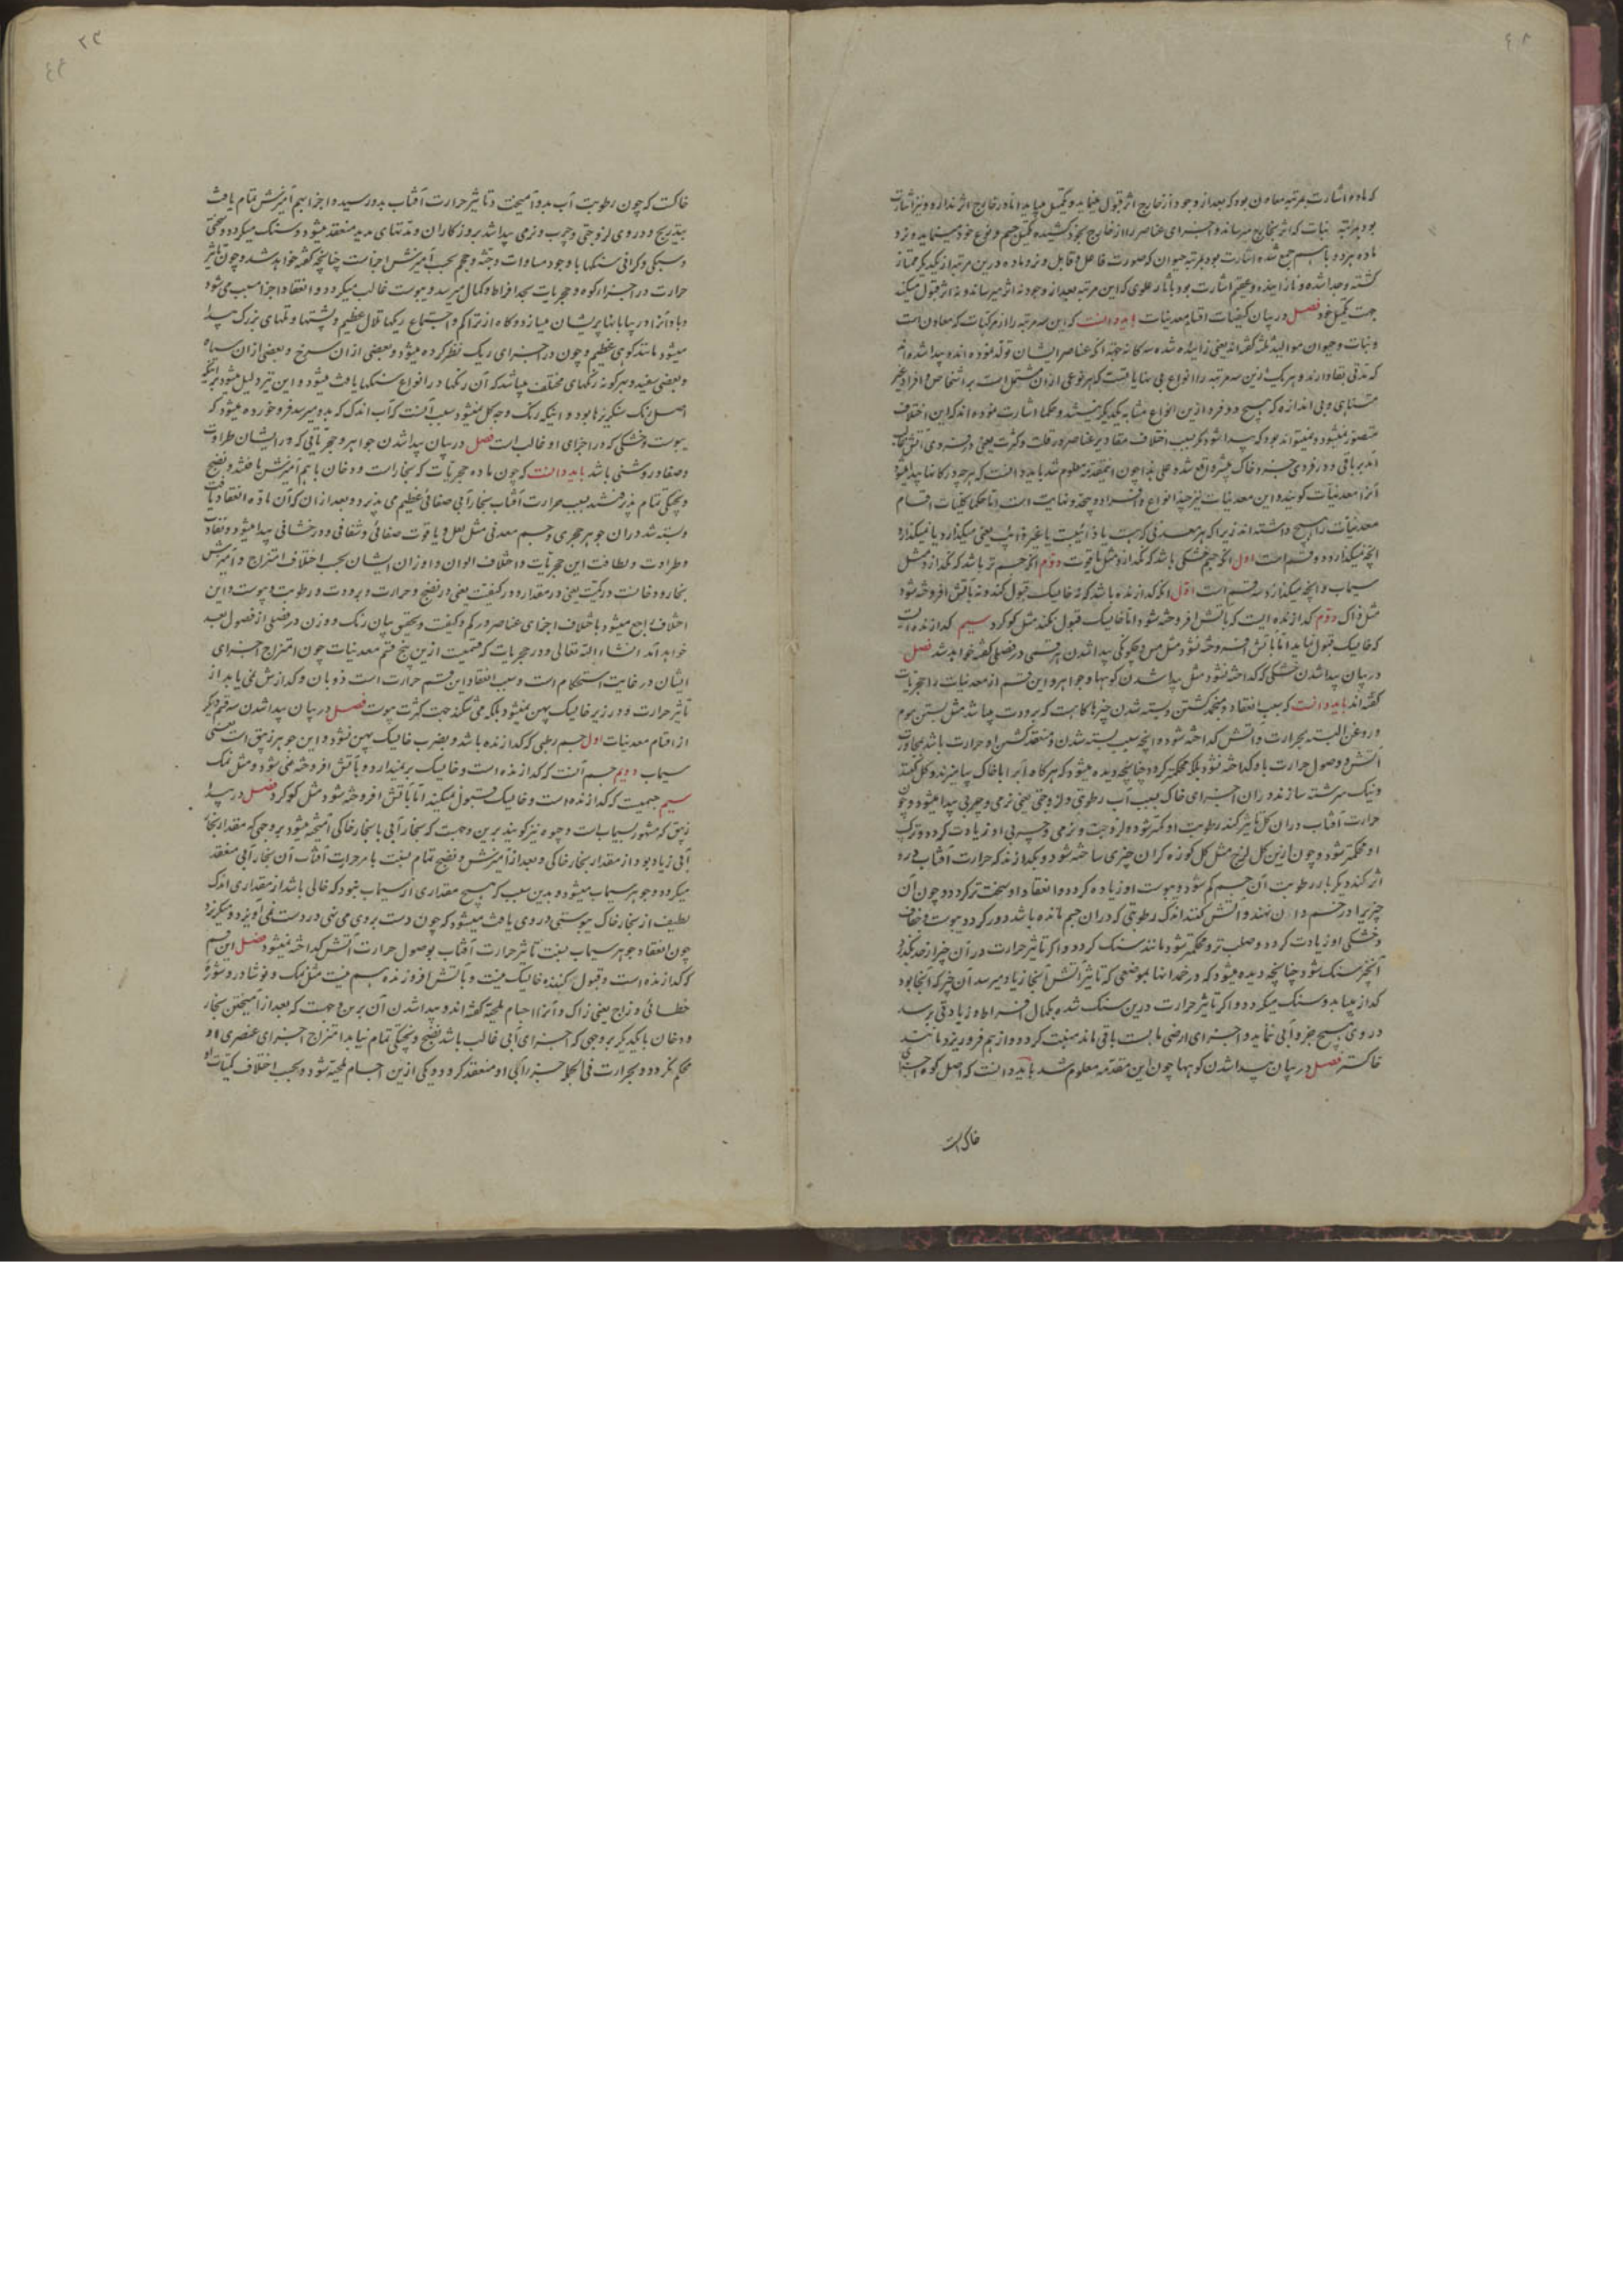 که ماده اشارت بمرتبه معادن بود که بعد از وجود از خارج اثر قبول مینماید و تکمیل میباید اما در خارج اثر ندارد و نیز اشارت
بود بمرتبه نبات که اثر بخارج میرساند و اجزای عناصر را از خارج بخود کشیده تکمیل جسم و نوع خود مینماید و نر و
ماده هر دو باهم جمع شده اشارت بود بمرتبه حیوان که صورت فاعل و قابل و نر و ماده درین مرتبه از یکدیگر ممتاز
گشته و جدا شده و زاینده و عقیم اشارت بود بآثار علوی که این مرتبه بعد از وجود نه اثر میرساند و نه اثر قبول میکند
جهت تکمیل خود فصل در بیان کیفیات اقسام معدنیات باید دانست که این سه مرتبه را از مرکبات که معادن است
و نبات و حیوان موالید ثلثه گفته‌اند یعنی زائیده شده سه گانه جهة آنکه عناصر ایشان تولد نموده‌اند و پیدا شده‌اند
که مدتی بقا دارند و هر یک ازین سه مرتبه را انواع بی منتهایافتست که هر نوعی از آن مشتمل است بر اشخاص و افراد غیر
متناهی و بی اندازه که هیچ دو فرد ازین انواع مشابه یکدیگر نیستند و حکما اشارت نموده‌اند که این اختلاف
متصور نمیشود و نمیتواند بود که پیدا شود مگر بسبب اختلاف مقادیر عناصر در قلت و کثرت یعنی در فردی آتش غالب
آید بر باقی و در فردی جزو خاک بیشتر واقع شد و علی هذا چون اینمقدمه معلوم شد باید دانست که هر چه در کانها پیدا میشود
آنرا معدنیات گویند و این معدنیات نیز چند انواع و افراد و بیحد و نهایت است اما حکما کلیات اقسام
معدنیات را پنج دانسته‌اند زیرا که هر معدنی که هست یا ذائبست یا غیر ذائب یعنی میگدازد یا نمیگدازد
آنچه نمیگدازد دو قسم است اول آنکه جسم خشکی باشد که نگدازد مثل یاقوت دوم آنکه جسم تر باشد که نگدازد مثل
سیماب و آنچه میگدازد سه قسم است اول آنکه گدازنده باشد که نه خایسک قبول کند و نه بآتش افروخته شود
مثل زاک دوم گدازنده ایست که بآتش افروخته شود اما خایسک قبول نکند مثل گوگرد سیم گدازنده ایست
که خایسک قبول نماید اما بآتش افروخته نشود مثل مس و چگونگی پیدا شدن هر قسمی در فصلی گفته خواهد شد فصل
در بیان پیدا شدن خشکی که گداخته نشود مثل پیدا شدن کوهها و جواهر و این قسم از معدنیات را حجریات
گفته‌اند باید دانست که سبب انعقاد و منجمد گشتن و بسته شدن چیزها گاهست که برودت میباشد مثل بستن موم
و روغن البته بحرارت و آتش گداخته شود و آنچه سبب بسته شدن و منعقد گشتن او حرارت باشد بمجاورت
آتش و وصول حرارت باو گداخته نشود بلکه محکمتر گردد چنانچه دیده میشود که هرگاه آب را با خاک بیامیزند و گل کنند
و نیک سرشته سازند در آن اجزای خاک بسبب آب رطوبتی و لزوجتی یعنی نرمی و چربی پیدا میشود و چون
حرارت آفتاب در آن گل تاثیر کند رطوبت او کمتر شود و لزوجت و نرمی و چربی او زیادت گردد و ترکیب
او محکمتر شود و چون ازین گل لزج مثل گل کوزه گران چیزی ساخته شود و بگذارند که حرارت آفتاب در و
اثر کند دیگر بار رطوبت آن جسم کم شود و یبوست او زیاده گردد و انعقاد او سخت تر گردد و چون آن
چیز را در خم دان نهند و آتش کنند اندک رطوبتی که در آن جسم مانده باشد دور گردد و یبوست و جفاف
و خشکی او زیادت گردد و صلب‌تر و محکمتر شود مانند سنگ گردد و اگر تاثیر حرارت در آن چیز از حد بگذرد
آنچیز سنگ شود چنانچه دیده میشود که در خمدانها بموضعی که تاثیر آتش آنجا زیاد میرسد آن چیز که آنجا بود
گداز بیابد و سنگ میگردد و اگر تاثیر حرارت درین سنگ شده بکمال افراط و زیادتی برسد
در وی هیچ جزو آبی نماید و اجزای ارضی یابست باقی ماند منبت گردد و از هم فرو ریزد مانند
خاکستر فصل در بیان پیدا شدن کوهها چون این مقدمه معلوم شد باید دانست که اصل کوه اجزای
خاکست
۲۳
خاکست که چون رطوبت آب بدو آمیخت و تاثیر حرارت آفتاب بدو رسید و اجزا بهم آمیزش تمام یافت
بتدریج و در وی لزوجتی و چرب و نرمی پیدا شد بروزگاران و مدتهای مدید منعقد میشود و سنگ میگردد و سختی
و سبکی و گرانی سنگها با وجود مساوات و جثه و حجم بحسب آمیزش اجزاست چنانچه گفته خواهد شد و چون تاثیر
حرارت در اجزاء کوه و حجریات بحد افراط و کمال میرسد و یبوست غالب میگردد و انعقاد اجزا سبب می‌شود
و باد آنرا در بیابانها پریشان میسازد و گاه از تراکم و اجتماع ریگها تلال عظیم و پشتها و تلهای بزرگ پیدا
میشود مانند کوی عظیم و چون در اجزای ریگ نظر کرده میشود و بعضی از آن سرخ و بعضی از آن سیاه
و بعضی سفید و هر گونه رنگهای مختلف میباشد که آن رنگها در انواع سنگها یافت میشود و این نیز دلیل میشود بر آنکه
اصل رنگ سنگریزها بود و اینکه رنگ و جه گل نمیشود سبب آنست که آب اندک که بدو میرسد فرو خورده میشود که
یبوست و خشکی که در اجزای او غالب است فصل در بیان پیدا شدن جواهر و حجریاتی که در ایشان طراوت
و صفا و روشنی باشد باید دانست که چون ماده حجریات که بخار است و دخان با هم آمیزش یافتند و نضج
و پختگی تمام پذیرفتند بسبب حرارت آفتاب بخار آبی صفائی عظیم می پذیرد و بعد از آن که آن ماده انعقاد یافت
و بسته شد در آن جوهر حجری و جسم معدنی مثل لعل و یاقوت صفائی و شفافی و درخشانی پیدا میشود و تفاوت
و طراوت و لطافت این حجریات و اختلاف الوان و اوزان ایشان بحسب اختلاف امتزاج و آمیزش
بخار و دخانست در کمیت یعنی در مقدار و در کیفیت یعنی در نضج و حرارت و برودت و رطوبت و یبوست و این
اختلاف راجع میشود باختلاف اجزای عناصر در کم و کیف و تحقیق بیان رنگ و وزن در فصلی از فصول بعد
خواهد آمد انشاء الله تعالی و در حجریات که قسمیست ازین پنج قسم معدنیات چون امتزاج اجزای
ایشان در غایت استحکام است و سبب انعقاد این قسم حرارت است ذوبان و گدازش نمی یابد از
تاثیر حرارت و در زیر خایسک پهن نمیشود بلکه می شکند جهت کثرت یبوست فصل در بیان پیدا شدن سه قسم دیگر
از اقسام معدنیات اول جسم رطبی که گدازنده باشد و بضرب خایسک پهن نشود و این جوهر زیبق است یعنی
سیماب دویم جسم آنست که گدازنده است و خایسک بر نمیدارد و بآتش افروخته نمی شود مثل نمک
سیم جسمیست که گدازنده است و خایسک قبول نمیکند اما بآتش افروخته شود مثل گوگرد فصل در پیدا
زیبق که مشهور بسیماب است و جیوه نیز گویند برین وجهست که بخار آبی با بخار خاکی آمیخته میشود بر وجهی که مقدار بخار
آبی زیاد بود از مقدار بخار خاکی و بعد از آمیزش و نضج تمام بسبب یا بر حرارت آفتاب آن بخار آبی منعقد
میگردد و جوهر سیماب میشود و بدین سبب که هیچ مقداری از سیماب نبود که خالی باشد از مقداری اندک
لطیف از بخار خاک یبوستی در وی یافت میشود که چون دست بر وی می نهی در دست نمی آویزد و میگریزد
چون انعقاد جوهر سیماب بسبب تاثیر حرارت آفتاب بوصول حرارت آتش گداخته نمیشود فصل این قسم
که گدازنده است و قبول کننده خایسک نیست و بآتش افروزنده هم نیست مثل نمک و نوشادر و شوره
خطائی و زاج یعنی زاک و آنرا اجسام ملحیه گفته‌اند و پیدا شدن آن برین وجهست که بعد از آمیختن بخار
و دخان با یکدیگر بر وجهی که اجزای آبی غالب باشد نضج و پختگی تمام نیابد امتزاج اجزای عنصری او
محکم نگردد و بحرارت فی الجمله جزء آبی او منعقد گردد و یکی ازین اجسام ملحیه شود و بحسب اختلاف کمیات او